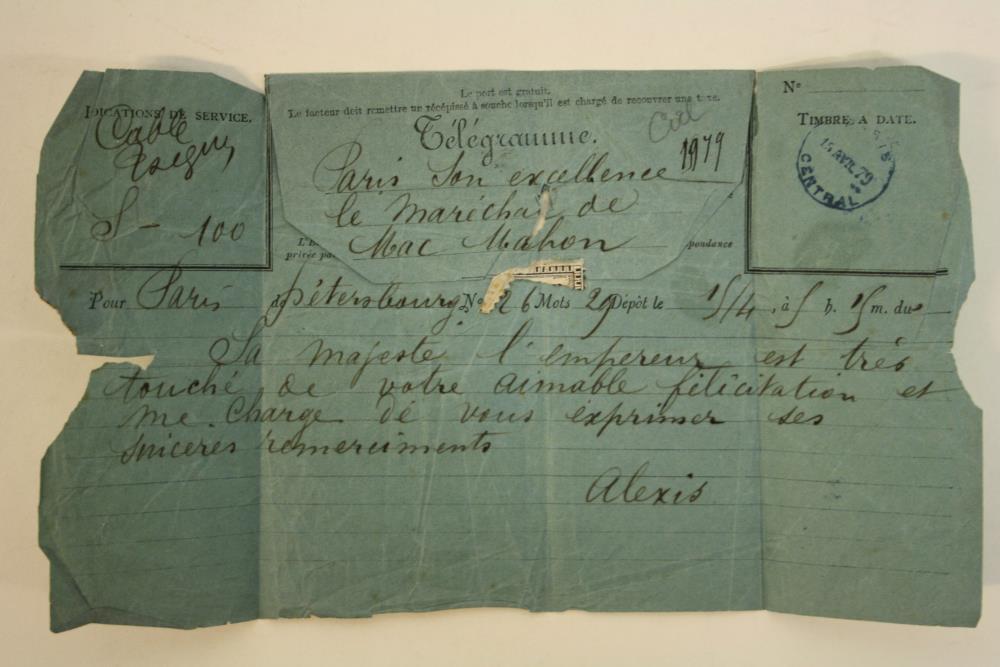 INDICATIONS DE SERVICE.
Cable
S - 100
Le port est gratuit.
Le facteur doit remettre un récépissé à souche lorsqu'il est chargé de recouvrer une taxe.
Télégramme.
1979
Paris Son excellence
le Maréchal de
Mac Mahon
privée pa
pondance
N°
TIMBRE A DATE.
15 AVRIL 79
CENTRAL
Pour Paris de pétersbourg N° 26 Mots 29 Dépôt le 15/4, à 5 h. 15 m. du
Sa majeste l'empereur est très
touché de votre aimable félicitation et
me charge de vous exprimer ses
sinceres remerciments
Alexis